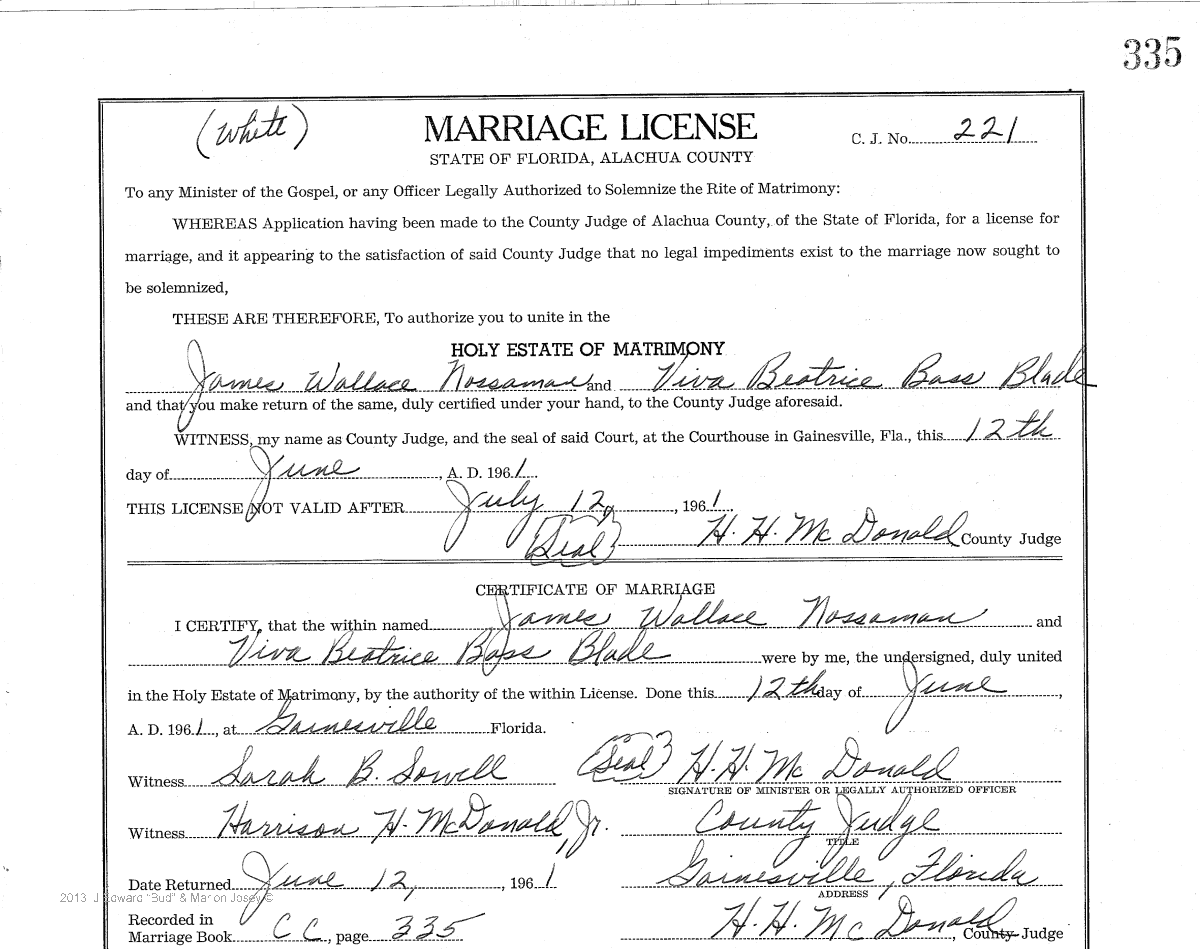 335
(White) MARRIAGE LICENSE C. J. No. 221
STATE OF FLORIDA, ALACHUA COUNTY
To any Minister of the Gospel, or any Officer Legally Authorized to Solemnize the Rite of Matrimony:
WHEREAS Application having been made to the County Judge of Alachua County, of the State of Florida, for a license for
marriage, and it appearing to the satisfaction of said County Judge that no legal impediments exist to the marriage now sought to
be solemnized,
THESE ARE THEREFORE, To authorize you to unite in the
HOLY ESTATE OF MATRIMONY
James Wallace Nossaman and Viva Beatrice Bass Blade
and that you make return of the same, duly certified under your hand, to the County Judge aforesaid.
WITNESS, my name as County Judge, and the seal of said Court, at the Courthouse in Gainesville, Fla., this 12th
day of June, A. D. 1961
THIS LICENSE NOT VALID AFTER July 12, 1961.
(Seal) H. H. McDonald County Judge
CERTIFICATE OF MARRIAGE
I CERTIFY, that the within named James Wallace Nossaman and
Viva Beatrice Bass Blade were by me, the undersigned, duly united
in the Holy Estate of Matrimony, by the authority of the within License. Done this 12th day of June,
A. D. 1961, at Gainesville Florida.
Witness Sarah B. Sowell (Seal) H. H. McDonald
SIGNATURE OF MINISTER OR LEGALLY AUTHORIZED OFFICER
Witness Harrison H. McDonald, Jr. County Judge
TITLE
Date Returned June 12, 1961 Gainesville, Florida
ADDRESS
2013 J Edward "Bud" & Marion Josey ©
Recorded in
Marriage Book CC, page 335 H. H. McDonald, County Judge